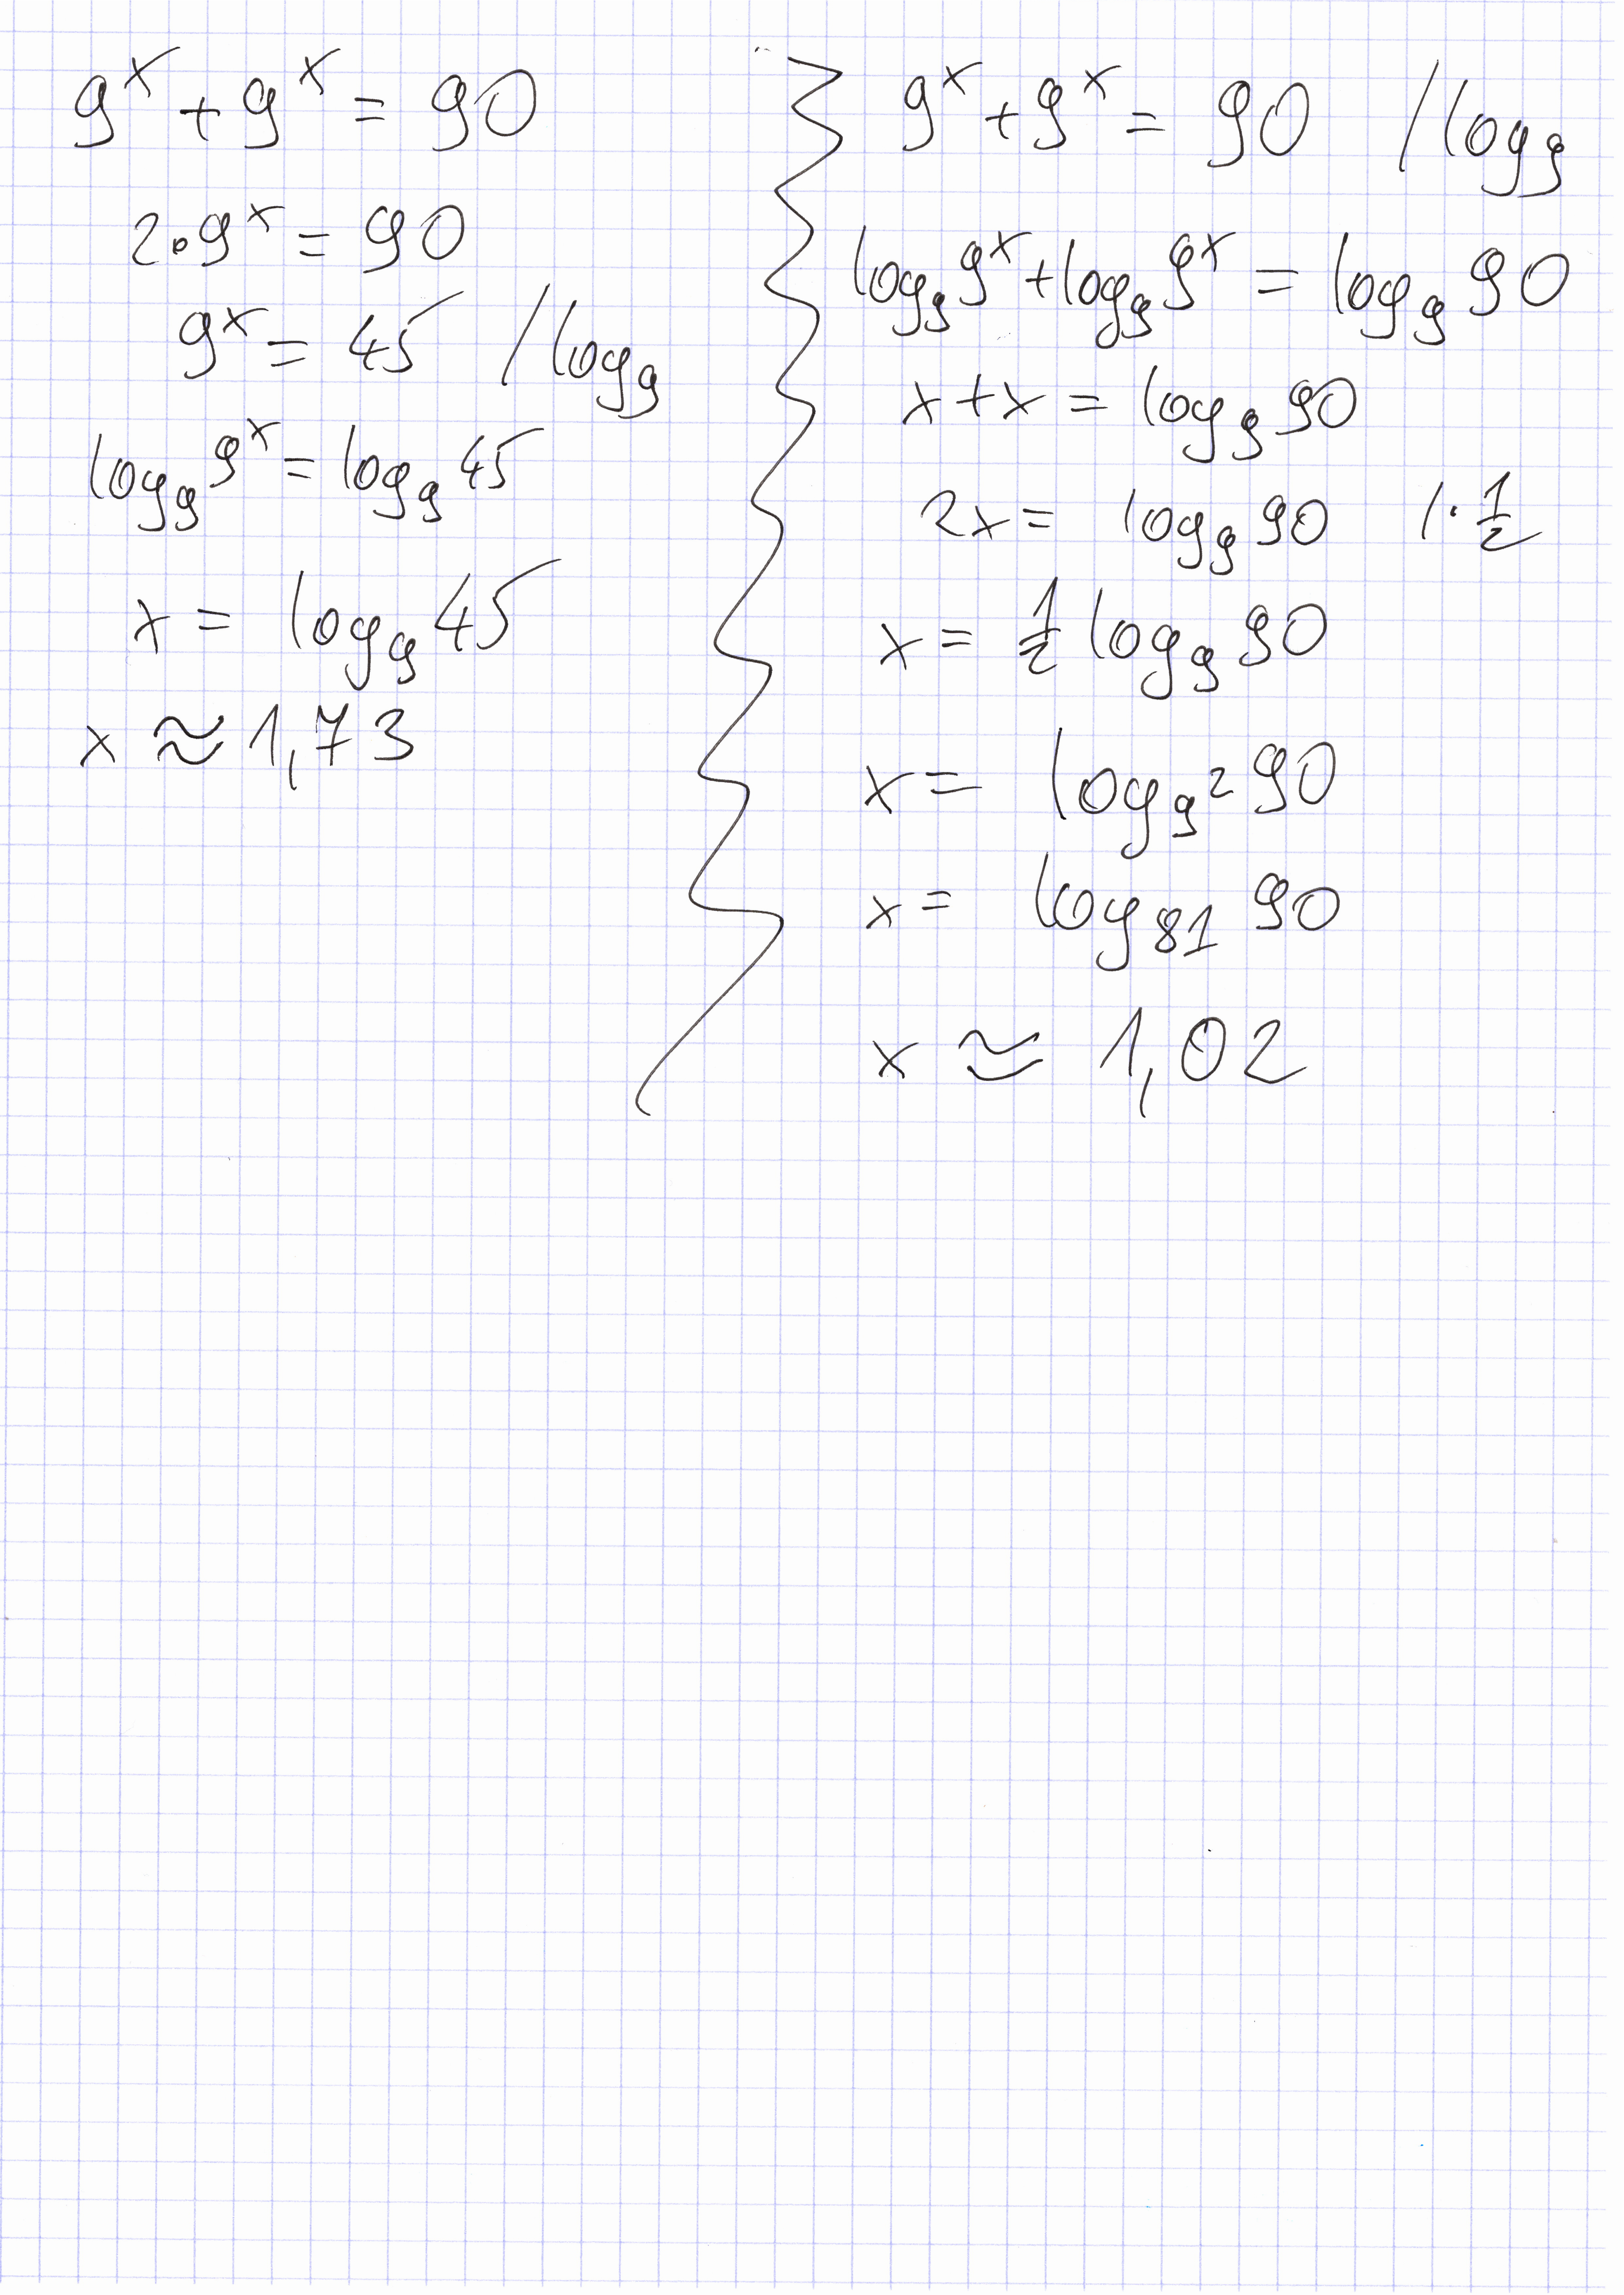 9^x + 9^x = 90
2·9^x = 90
9^x = 45 / log_9
log_9 9^x = log_9 45
x = log_9 45
x ≈ 1,73
9^x + 9^x = 90 / log_9
log_9 9^x + log_9 9^x = log_9 90
x + x = log_9 90
2x = log_9 90 / · 1/2
x = 1/2 log_9 90
x = log_9² 90
x = log_81 90
x ≈ 1,02